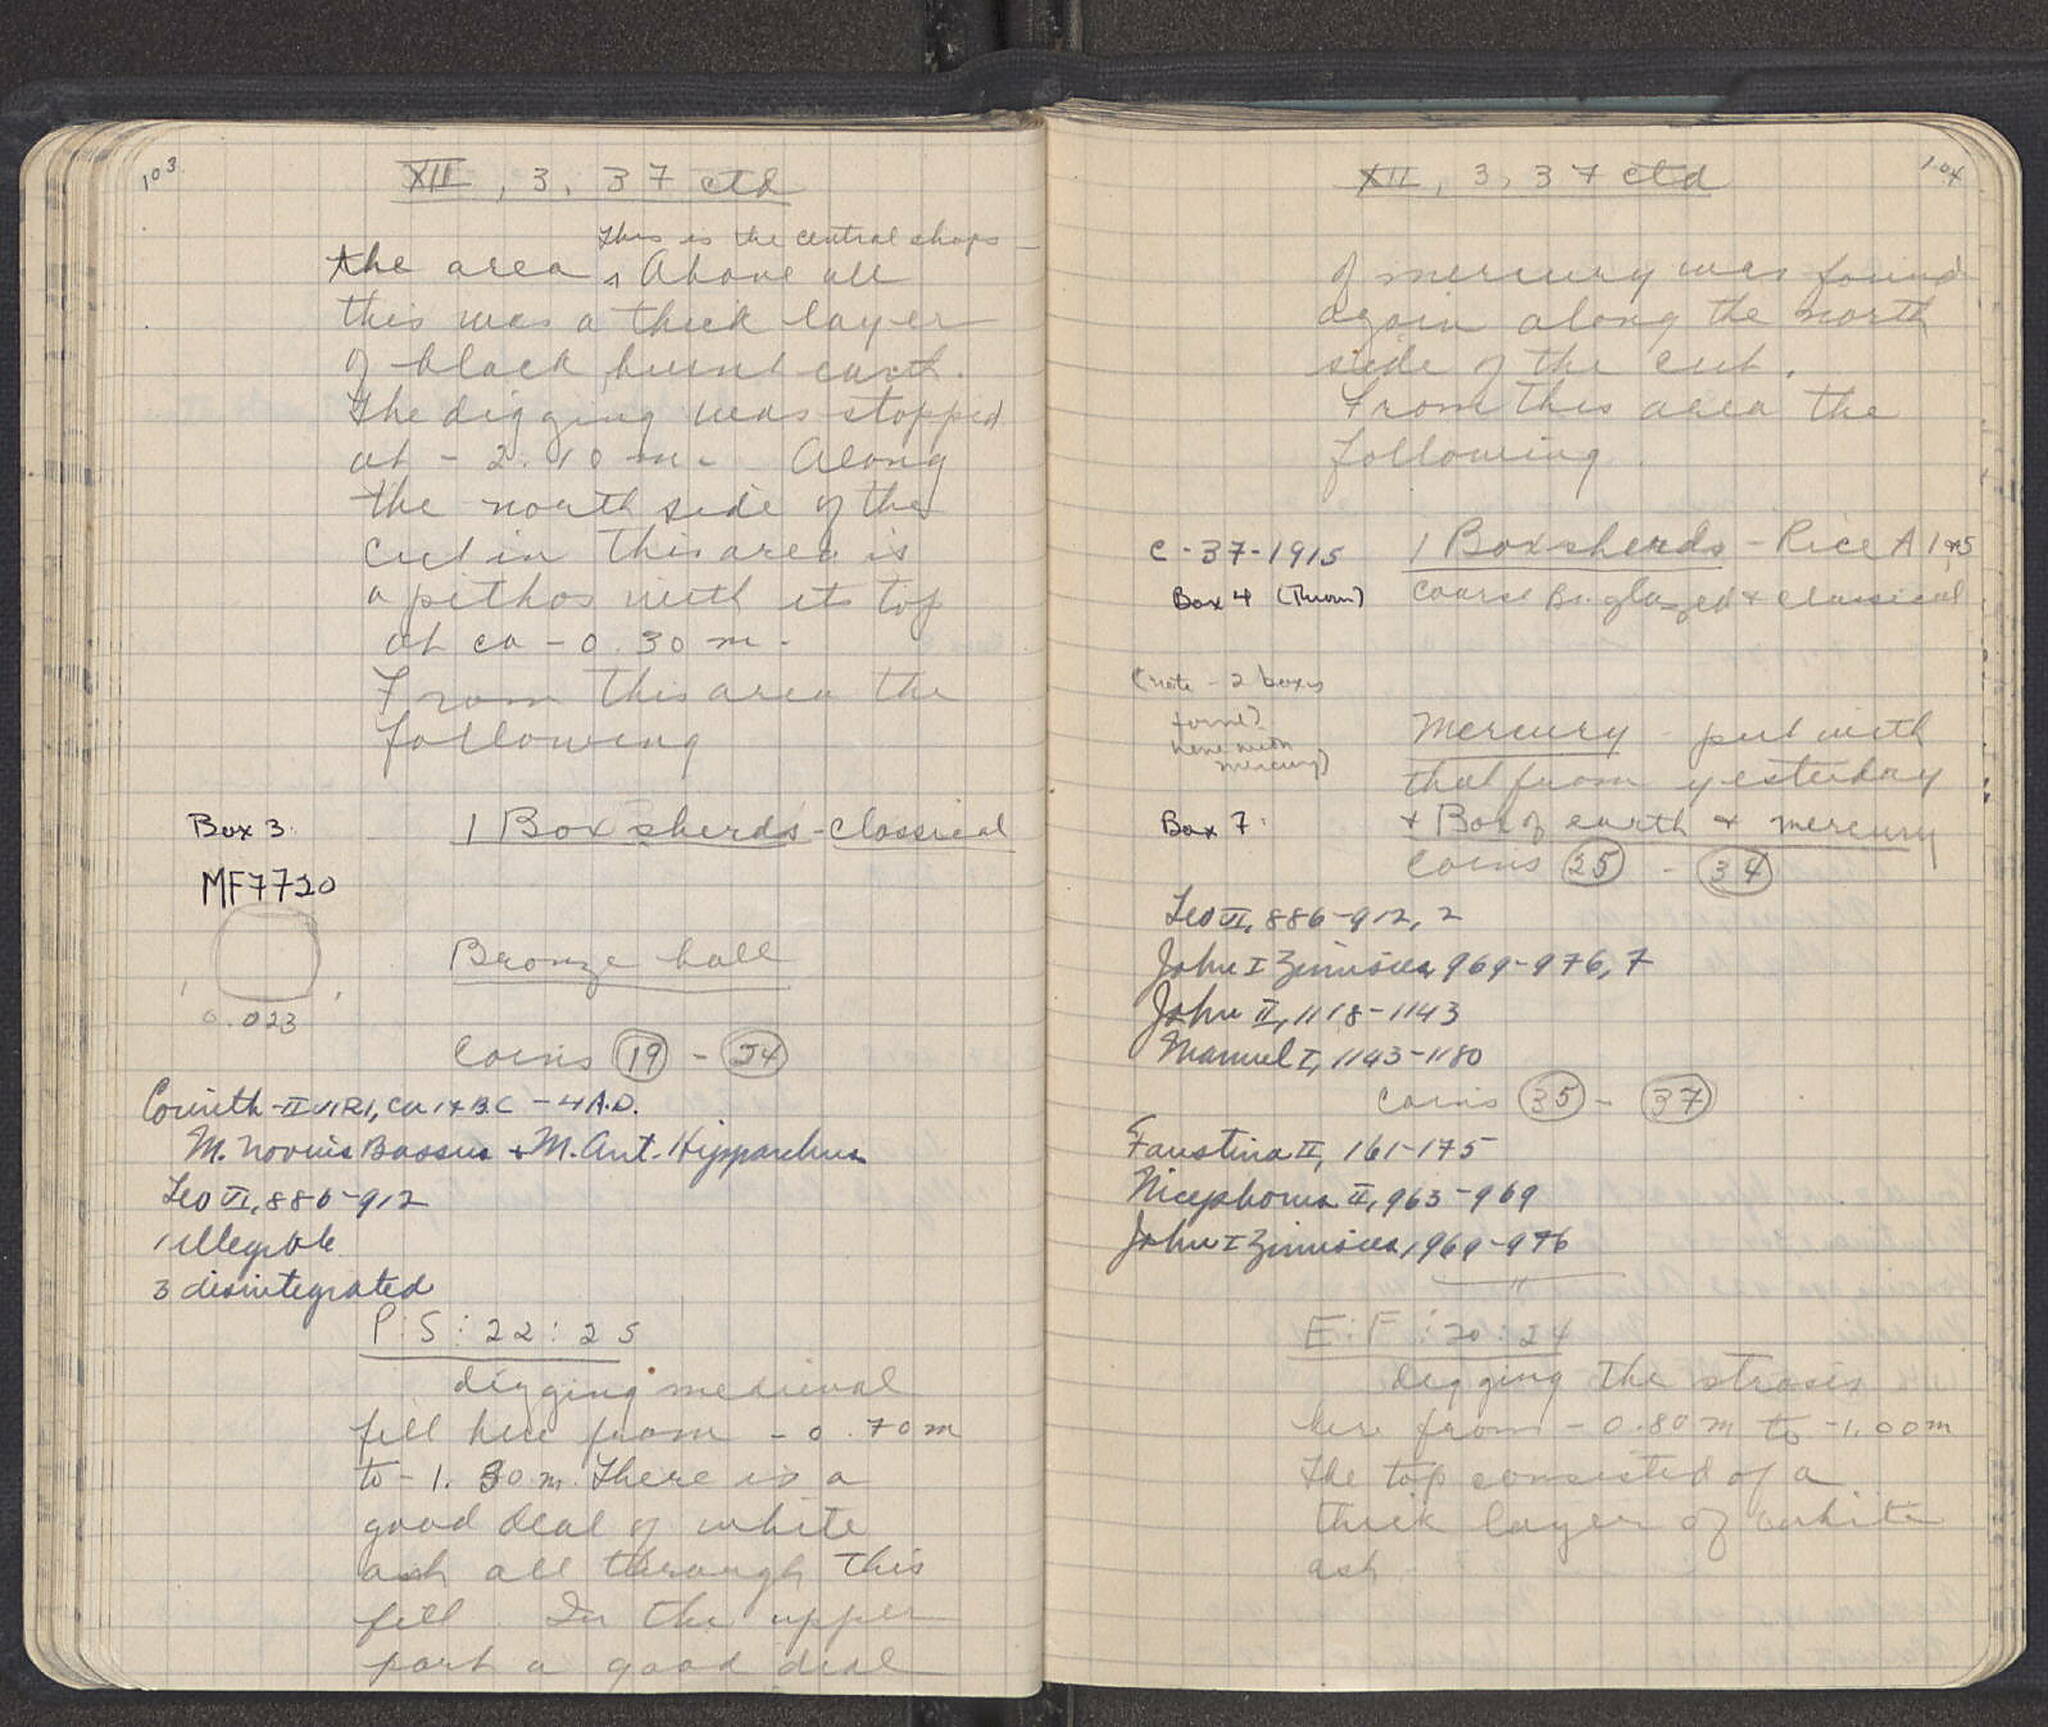 103
XII, 3, 37 ctd
This is the central shops -
the area ^ Above all
this was a thick layer
of black burnt earth.
The digging was stopped
at - 2.10 m. Along
the north side of the
cut in this area is
a pithos with its top
at ca - 0.30 m.
From this area the
following
Box 3.
1 Box sherds - classical
MF7720
Bronze ball
0.023
Coins 19 - 24
Corinth - II VIRI, ca 17 B.C - 4 A.D.
M. Novius Bassus + M. Ant. Hipparchus
Leo VI, 886-912
1 illegible
3 disintegrated
P:S:22:25
digging medieval
fill here from - 0.70 m
to - 1.30 m. There is a
good deal of white
ash all through this
fill. In the upper
part a good deal
104
XII, 3, 37 ctd
of mercury was found
again along the north
side of the cut.
From this area the
following.
C-37-1915
1 Box sherds - Rice A 1, 5
Box 4 (Thrown)
coarse Br. glazed + classical
(note - 2 boxes
found
here with
mercury)
Mercury - put with
that from yesterday
Box 7.
+ Box of earth + mercury
Coins 25 - 34
Leo VI, 886-912, 2
John I Zimisces, 969-976, 7
John II, 1118-1143
Manuel I, 1143-1180
Coins 35 - 37
Faustina II, 161-175
Nicephorus II, 963-969
John I Zimisces, 969-976
E:F:20:24
digging the strosis
here from - 0.80 m to - 1.00 m
The top consisted of a
thick layer of white
ash